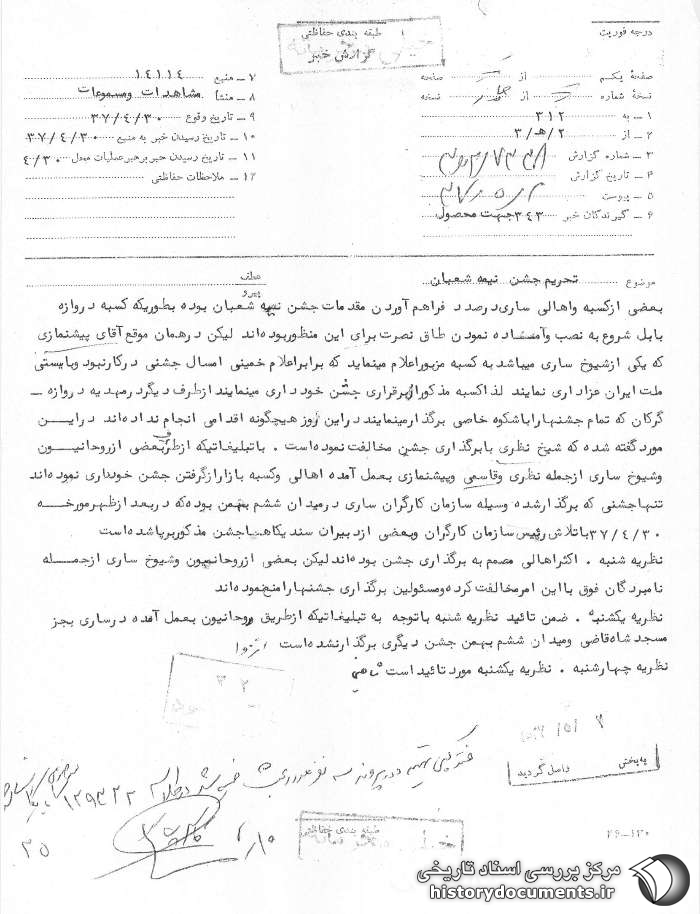 درجه فوریت
طبقه بندی حفاظتی
گزارش خبر
صفحهٔ یکم از صفحه
نسخهٔ شماره از نسخه
۱ ـ به ۳۱۲
۲ ـ از ۲/هـ/۳
۳ ـ شماره گزارش
۴ ـ تاریخ گزارش
۵ ـ پیوست
۶ ـ گیرندگان خبر ۳۴۳ جهت محصول
۷ ـ منبع ۱۴۱۱۴
۸ ـ منشأ مشاهدات ومسموعات
۹ ـ تاریخ وقوع ۳۷/۴/۳۰
۱۰ ـ تاریخ رسیدن خبر به منبع ۳۷/۴/۳۰
۱۱ ـ تاریخ رسیدن خبر برهبر عملیات محل ۴/۳۰
۱۲ ـ ملاحظات حفاظتی
موضوع تحریم جشن نیمه شعبان
عطف
پیرو
بعضی ازکسبه واهالی ساری درصدد فراهم آوردن مقدمات جشن نیمه شعبان بوده بطوریکه کسبه دروازه
بابل شروع به نصب وآمساده نمودن طاق نصرت برای این منظور بوده اند لیکن درهمان موقع آقای پیشنمازی
که یکی ازشیوخ ساری میباشد به کسبه مزبور اعلام مینماید که برابراعلام خمینی امسال جشنی درکارنبود وبایستی
ملت ایران عزاداری نمایند لذا کسبه مذکور ازبرقراری جشن خودداری مینمایند ازطرف دیگر درمهدیه دروازه ـ
گرگان که تمام جشنهارا باشکوه خاصی برگذارمینمایند دراین روز هیچگونه اقدامی انجام نداده اند دراین
مورد گفته شده که شیخ نظری بابرگذاری جشن مخالفت نموده است . باتبلیغاتیکه ازطرف بعضی ازروحانیون
وشیوخ ساری ازجمله نظری وقاسمی وپیشنمازی بعمل آمده اهالی وکسبه بازار ازگرفتن جشن خودداری نموده اند
تنها جشنی که برگذارشده وسیله سازمان کارگران ساری درمیدان ششم بهمن بوده که دربعد ازظهر مورخه
۳۷/۴/۳۰ باتلاش رئیس سازمان کارگران وبعضی ازدبیران سندیکاها جشن مذکور برپاشده است
نظریه شنبه . اکثراهالی مصمم به برگذاری جشن بوده اند لیکن بعضی ازروحانیون وشیوخ ساری ازجمله
نامبردگان فوق بااین امر مخالفت کرده ومسئولین برگذاری جشنهارا منع نموده اند
نظریه یکشنبه . ضمن تائید نظریه شنبه باتوجه به تبلیغاتیکه ازطریق روحانیون بعمل آمده درساری بجز
مسجد شاه قاضی ومیدان ششم بهمن جشن دیگری برگذارنشده است
نظریه چهارشنبه . نظریه یکشنبه مورد تائید است
بایگانی
واصل گردید
طبقه بندی حفاظتی
۳۵
۲۶-۱۲۰
مرکز بررسی اسناد تاریخی
historydocuments.ir